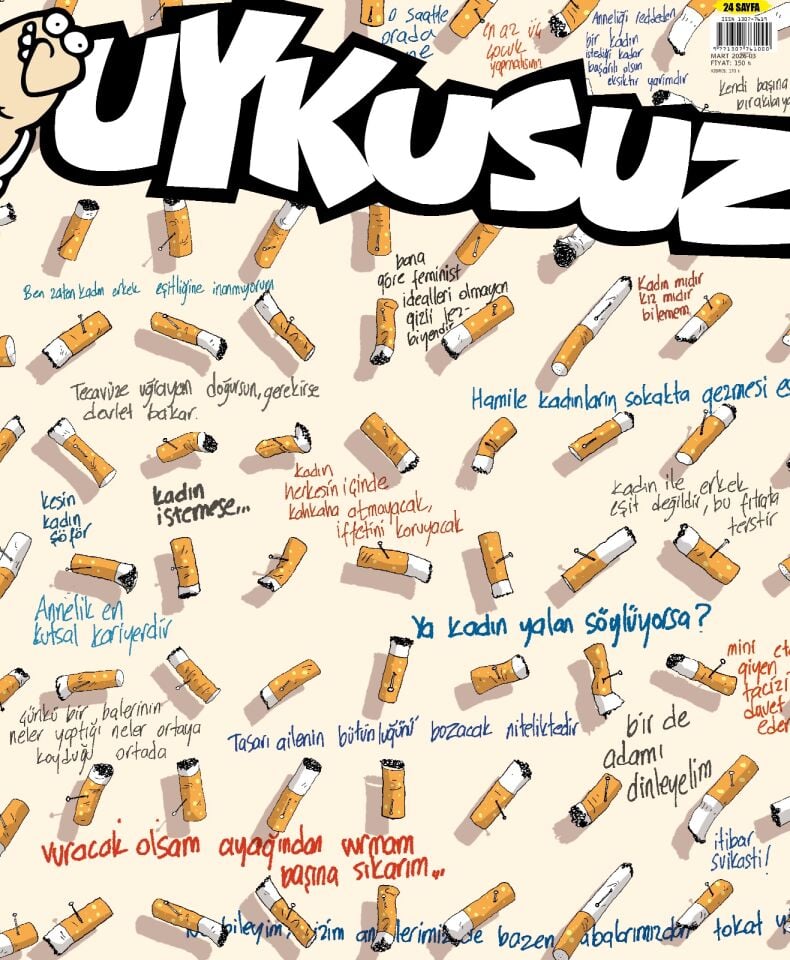 24 SAYFA
ISSN 1307-7619
9 771307 761000
MART 2026-03
FİYAT: 150 ₺
KIBRIS: 170 ₺
UYKUSUZ
O saatte
orada
ne
En az üç
çocuk
yapmalısın
Anneliği reddeden
bir kadın
istediği kadar
başarılı olsun
eksiktir yarımdır
kendi başına
Ben zaten kadın erkek eşitliğine inanmıyorum
bana
göre feminist
idealleri olmayan
gizli lez-
biyendir
Kadın mıdır
kız mıdır
bilemem
Tecavüze uğrayan doğursun, gerekirse
devlet bakar.
Hamile kadınların sokakta gezmesi
kesin
kadın
şöför
kadın
istemese...
kadın
herkesin içinde
kahkaha atmayacak,
iffetini koruyacak
kadın ile erkek
eşit değildir, bu fıtrata
terstir
Annelik en
kutsal kariyerdir
Ya kadın yalan söylüyorsa?
mini
giyen
tacizi
davet
eder
çünkü bir balerinin
neler yaptığı neler ortaya
koyduğu ortada
Tasarı ailenin bütünlüğünü bozacak niteliktedir
bir de
adamı
dinleyelim
vuracak olsam ayağından vurmam
başına sıkarım...
itibar
suikasti!
bileyim, bizim de bazen tokat